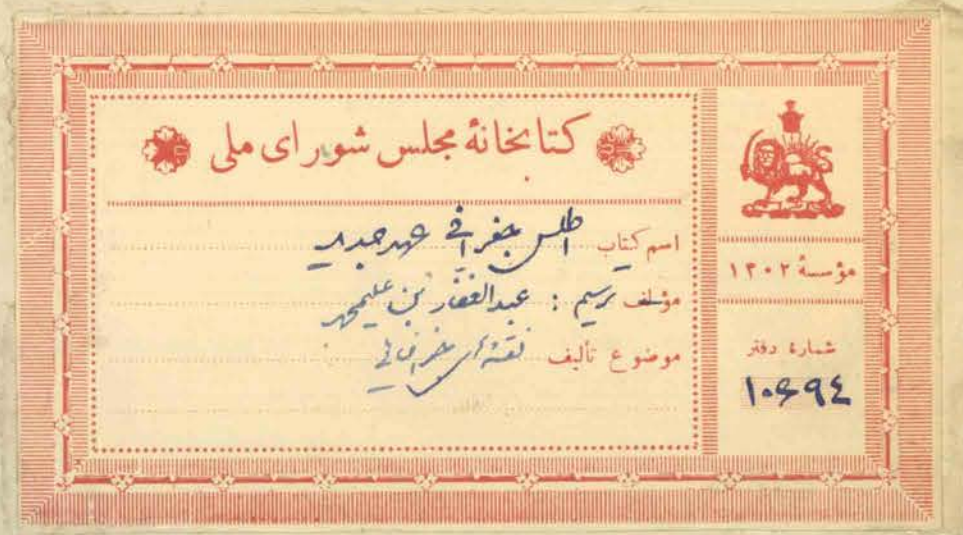 کتابخانهٔ مجلس شورای ملی
اسم کتاب اطلس جغرافی عهد جدید
مؤلف ترسیم : عبدالغفار بن علیمحمد
موضوع تألیف نقشه‌های جغرافیائی
مؤسسهٔ ۱۳۰۲
شمارهٔ دفتر
۱۰۶۹۴